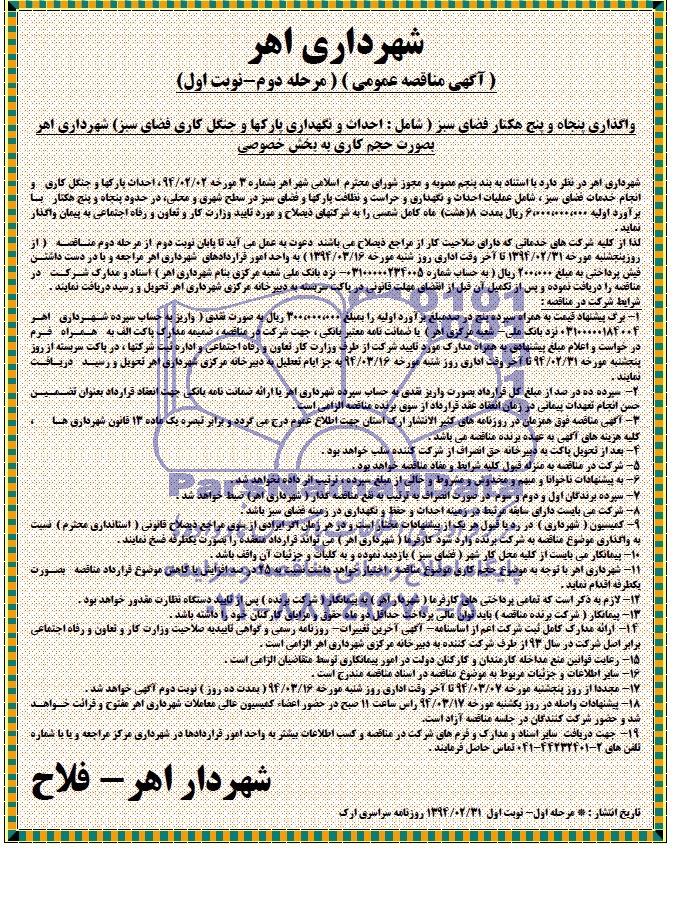 شهرداری اهر
( آگهی مناقصه عمومی ) ( مرحله دوم-نوبت اول)
واگذاری پنجاه و پنج هکتار فضای سبز ( شامل : احداث و نگهداری پارکها و جنگل کاری فضای سبز) شهرداری اهر
بصورت حجم کاری به بخش خصوصی
شهرداری اهر در نظر دارد با استناد به بند پنجم مصوبه و مجوز شورای محترم اسلامی شهر اهر بشماره ۳ مورخه ۹۴/۰۲/۰۲ ، احداث پارکها و جنگل کاری و
انجام خدمات فضای سبز ، شامل عملیات احداث و نگهداری و حراست و نظافت پارکها و فضای سبز در سطح شهری و محلی، در حدود پنجاه و پنج هکتار با
برآورد اولیه ۶/۰۰۰/۰۰۰/۰۰۰ ریال بمدت ۸(هشت) ماه کامل شمسی را به شرکتهای ذیصلاح و مورد تایید وزارت کار و تعاون و رفاه اجتماعی به پیمان واگذار
نماید .
لذا از کلیه شرکت های خدماتی که دارای صلاحیت کار از مراجع ذیصلاح می باشند دعوت به عمل می آید تا پایان نوبت دوم از مرحله دوم مناقصه ( از
روزپنجشنبه مورخه ۱۳۹۴/۰۲/۳۱ تا آخر وقت اداری روز شنبه مورخه ۱۳۹۴/۰۳/۱۶ ) به واحد امور قراردادهای شهرداری اهر مراجعه و با در دست داشتن
فیش پرداختی به مبلغ ۲۰۰/۰۰۰ ریال ( به حساب شماره ۰۳۱۰۰۰۰۰۲۳۴۰۰۵ نزد بانک ملی شعبه مرکزی بنام شهرداری اهر ) اسناد و مدارک شرکت در
مناقصه را دریافت نموده و پس از تکمیل آن قبل از انقضای مهلت قانونی در پاکت سربسته به دبیرخانه مرکزی شهرداری اهر تحویل و رسید دریافت نمایند .
شرایط شرکت در مناقصه :
۱- برگ پیشنهاد قیمت به همراه سپرده پنج در صدمبلغ برآورد اولیه را بمبلغ ۳۰۰/۰۰۰/۰۰۰ ریال به صورت نقدی ( واریز به حساب سپرده شهرداری اهر
۰۳۱۰۰۰۰۰۱۸۴۰۰۴ نزد بانک ملی- شعبه مرکزی اهر ) یا ضمانت نامه معتبر بانکی ، جهت شرکت در مناقصه ، ضمیمه مدارک پاکت الف به همراه فرم
در خواست و اعلام مبلغ پیشنهادی به همراه مدارک مورد تایید شرکت از طرف وزارت کار تعاون و رفاه اجتماعی و اداره ثبت شرکتها ، در پاکت سربسته از روز
پنجشنبه مورخه ۹۴/۰۲/۳۱ تا آخر وقت اداری روز شنبه مورخه ۹۴/۰۳/۱۶ به جز ایام تعطیل به دبیرخانه مرکزی شهرداری اهر تحویل و رسید دریافت
نمایند .
۲- سپرده ده در صد از مبلغ کل قرارداد بصورت واریز نقدی به حساب سپرده شهرداری اهر یا ارائه ضمانت نامه بانکی جهت انعقاد قرارداد بعنوان تضمین
حسن انجام تعهدات پیمانی در زمان انعقاد عقد قرارداد از سوی برنده مناقصه الزامی است .
۳- آگهی مناقصه فوق همزمان در روزنامه های کثیر الانتشار ارک استان جهت اطلاع عموم درج می گردد و برابر تبصره یک ماده ۱۳ قانون شهرداری ها ،
کلیه هزینه های آگهی به عهده برنده مناقصه می باشد .
۴- بعد از تحویل پاکت به دبیرخانه حق انصراف از شرکت کننده سلب خواهد بود .
۵- شرکت در مناقصه به منزله قبول کلیه شرایط و مفاد مناقصه خواهد بود .
۶- به پیشنهادات ناخوانا و مبهم و مخدوش و مشروط و خالی از مبلغ سپرده ، ترتیب اثر داده نخواهد شد .
۷- سپرده برندگان اول و دوم و سوم در صورت انصراف به ترتیب به نفع مناقصه گذار ( شهرداری اهر) ضبط خواهد شد .
۸- شرکت می بایست دارای سابقه مرتبط در زمینه احداث و حفظ و نگهداری در زمینه فضای سبز باشد .
۹- کمیسیون ( شهرداری ) در رد یا قبول هر یک از پیشنهادات مختار است و در هر زمان اگر ایرادی از سوی مراجع ذیصلاح قانونی ( استانداری محترم ) نسبت
به واگذاری موضوع مناقصه به شرکت برنده وارد شود کارفرما ( شهرداری اهر ) می تواند قرارداد منعقده را بصورت یکطرفه فسخ نمایند .
۱۰- پیمانکار می بایست از کلیه محل کار شهر ( فضای سبز ) بازدید نموده و به کلیات و جزئیات آن واقف باشد .
۱۱- شهرداری اهر با توجه به موضوع حجم کاری موضوع مناقصه ، اختیار خواهد داشت نسبت به ۲۵ درصد افزایش یا کاهش موضوع قرارداد مناقصه بصورت
یکطرفه اقدام نماید .
۱۲- لازم به ذکر است که تمامی پرداختی های کارفرما ( شهرداری اهر ) به پیمانکار ( شرکت برنده ) پس از تایید دستگاه نظارت مقدور خواهد بود .
۱۳- پیمانکار ( شرکت برنده مناقصه ) باید توان مالی پرداخت حداقل دو ماه حقوق و مزایای کارکنان خود را داشته باشد .
۱۴- ارائه مدارک کامل ثبت شرکت اعم از اساسنامه- آگهی آخرین تغییرات- روزنامه رسمی و گواهی تاییدیه صلاحیت وزارت کار و تعاون و رفاه اجتماعی
برابر اصل شرکت در سال ۹۳ از طرف شرکت کننده به دبیرخانه مرکزی شهرداری اهر الزامی است .
۱۵- رعایت قوانین منع مداخله کارمندان و کارکنان دولت در امور پیمانکاری توسط متقاضیان الزامی است .
۱۶- سایر اطلاعات و جزئیات مربوط به موضوع مناقصه در اسناد مناقصه مندرج است .
۱۷- مجددا از روز پنجشنبه مورخه ۹۴/۰۳/۰۷ تا آخر وقت اداری روز شنبه مورخه ۹۴/۰۳/۱۶ ( بمدت ده روز ) نوبت دوم آگهی خواهد شد .
۱۸- پیشنهادات واصله در روز یکشنبه مورخه ۹۴/۰۳/۱۷ راس ساعت ۱۱ صبح در حضور اعضاء کمیسیون عالی معاملات شهرداری اهر مفتوح و قرائت خواهد
شد و حضور شرکت کنندگان در جلسه مناقصه آزاد است.
۱۹- جهت دریافت سایر اسناد و مدارک و فرم های شرکت در مناقصه و کسب اطلاعات بیشتر به واحد امور قراردادها در شهرداری مرکز مراجعه و یا با شماره
تلفن های ۲-۰۴۱-۴۴۲۳۲۴۰۱ تماس حاصل فرمایند .
شهردار اهر- فلاح
تاریخ انتشار : * مرحله اول- نوبت اول ۱۳۹۴/۰۲/۳۱ روزنامه سراسری ارک